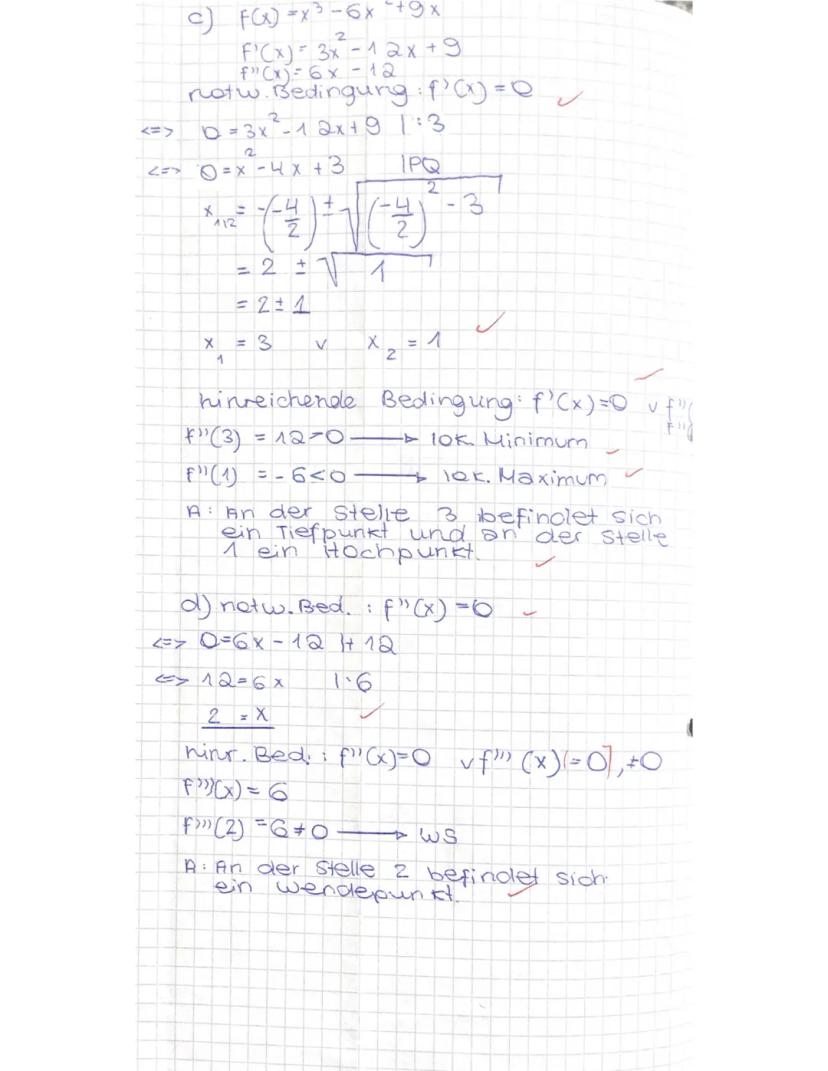 c) f(x) = x³ - 6x² + 9x
f'(x) = 3x² - 12x + 9
f''(x) = 6x - 12
notw. Bedingung: f'(x) = 0
<=> 0 = 3x² - 12x + 9 | :3
<=> 0 = x² - 4x + 3 | PQ
x₁/₂ = -(-4/2) ± √((-4/2)² - 3)
= 2 ± √1
= 2 ± 1
x₁ = 3 v x₂ = 1
hinreichende Bedingung: f'(x) = 0 v f''(
f''(
f''(3) = 12 > 0 → lok. Minimum
f''(1) = -6 < 0 → lok. Maximum
A: An der Stelle 3 befindet sich
ein Tiefpunkt und an der Stelle
1 ein Hochpunkt.
d) notw. Bed. : f''(x) = 0
<=> 0 = 6x - 12 | + 12
<=> 12 = 6x | : 6
2 = x
hinr. Bed. : f''(x) = 0 v f'''(x) [= 0], ≠ 0
f'''(x) = 6
f'''(2) = 6 ≠ 0 → WS
A: An der Stelle 2 befindet sich
ein Wendepunkt.